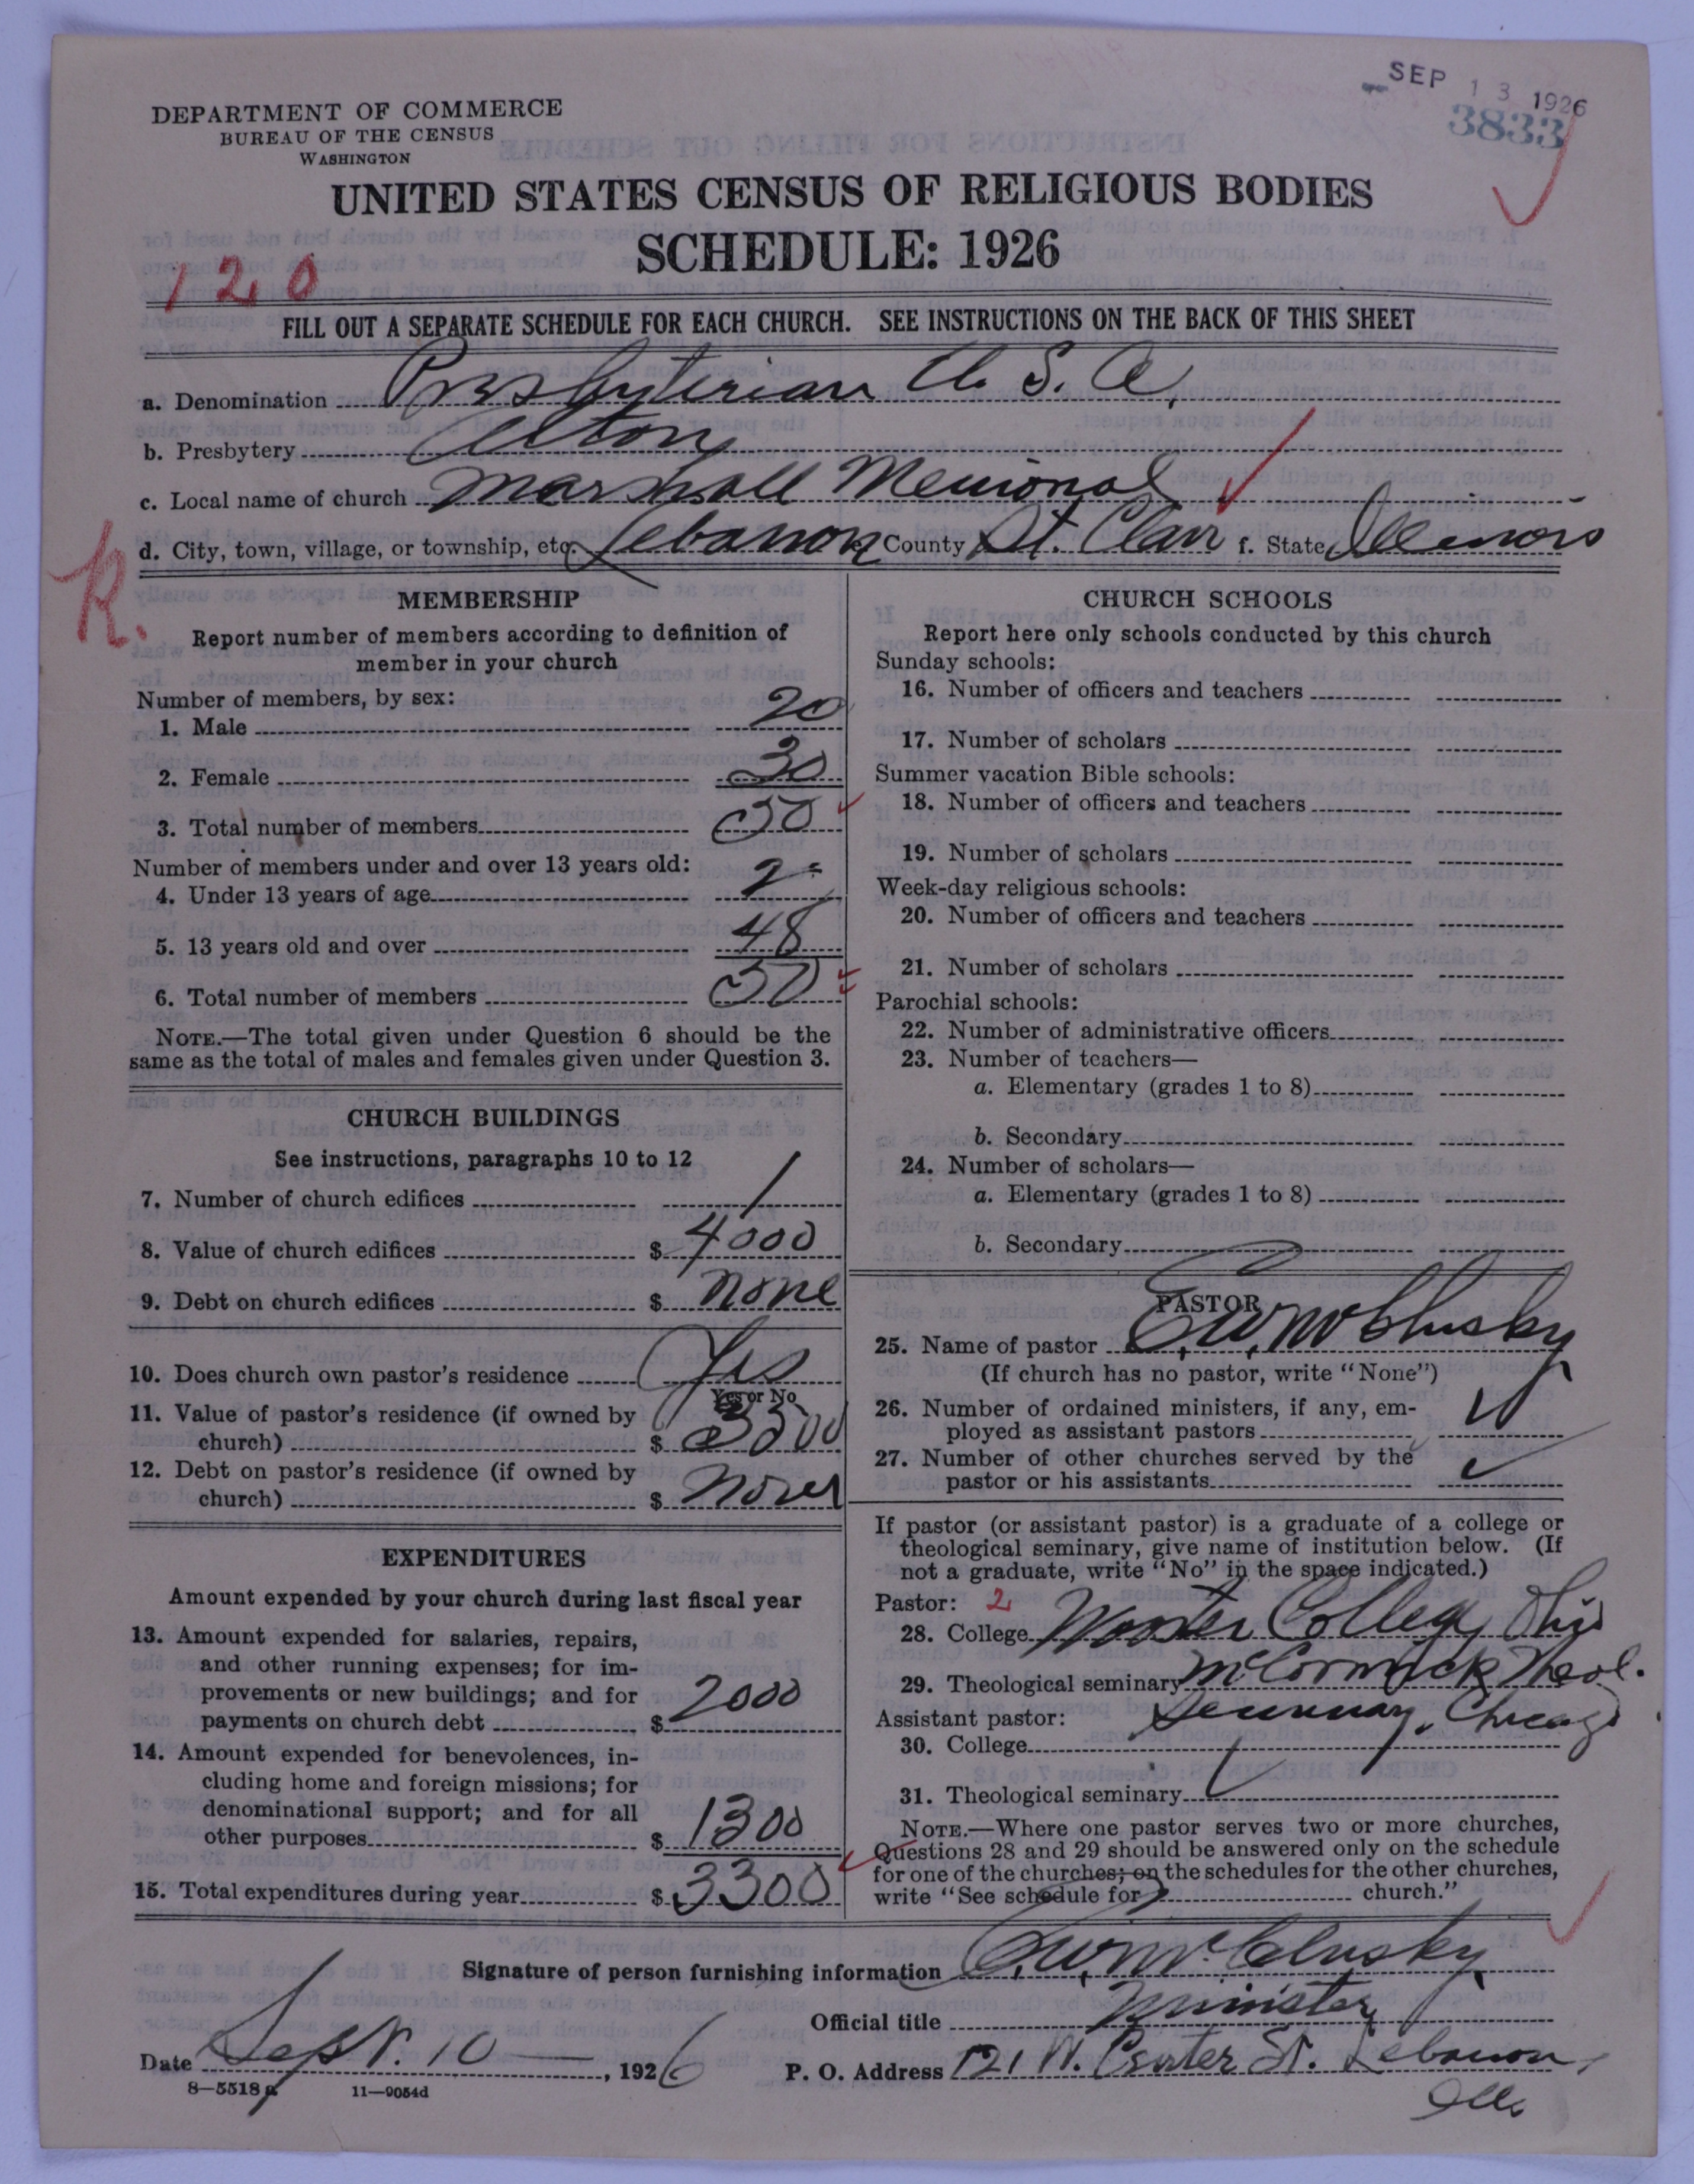 SEP 13 1926
3833
DEPARTMENT OF COMMERCE
BUREAU OF THE CENSUS
WASHINGTON
UNITED STATES CENSUS OF RELIGIOUS BODIES
SCHEDULE: 1926
120
FILL OUT A SEPARATE SCHEDULE FOR EACH CHURCH. SEE INSTRUCTIONS ON THE BACK OF THIS SHEET
a. Denomination Presbyterian U. S. A.
b. Presbytery Alton
c. Local name of church Marshall Memorial
d. City, town, village, or township, etc. Lebanon e. County St. Clair f. State Illinois
R.
MEMBERSHIP
Report number of members according to definition of
member in your church
Number of members, by sex:
1. Male 20
2. Female 30
3. Total number of members 50
Number of members under and over 13 years old:
4. Under 13 years of age 2
5. 13 years old and over 48
6. Total number of members 50
NOTE.—The total given under Question 6 should be the
same as the total of males and females given under Question 3.
CHURCH BUILDINGS
See instructions, paragraphs 10 to 12
7. Number of church edifices 1
8. Value of church edifices $ 4000
9. Debt on church edifices $ none
10. Does church own pastor's residence Yes
Yes or No
11. Value of pastor's residence (if owned by
church) $ 3500
12. Debt on pastor's residence (if owned by
church) $ None
EXPENDITURES
Amount expended by your church during last fiscal year
13. Amount expended for salaries, repairs,
and other running expenses; for im-
provements or new buildings; and for
payments on church debt $ 2000
14. Amount expended for benevolences, in-
cluding home and foreign missions; for
denominational support; and for all
other purposes $ 1300
15. Total expenditures during year $ 3300
CHURCH SCHOOLS
Report here only schools conducted by this church
Sunday schools:
16. Number of officers and teachers
17. Number of scholars
Summer vacation Bible schools:
18. Number of officers and teachers
19. Number of scholars
Week-day religious schools:
20. Number of officers and teachers
21. Number of scholars
Parochial schools:
22. Number of administrative officers
23. Number of teachers—
a. Elementary (grades 1 to 8)
b. Secondary
24. Number of scholars—
a. Elementary (grades 1 to 8)
b. Secondary
PASTOR
25. Name of pastor E. W. McClusky
(If church has no pastor, write "None")
26. Number of ordained ministers, if any, em-
ployed as assistant pastors
27. Number of other churches served by the
pastor or his assistants
If pastor (or assistant pastor) is a graduate of a college or
theological seminary, give name of institution below. (If
not a graduate, write "No" in the space indicated.)
Pastor: 2
28. College Wooster College, Ohio
29. Theological seminary McCormick Theol.
Assistant pastor: Seminary, Chicago
30. College
31. Theological seminary
NOTE.—Where one pastor serves two or more churches,
Questions 28 and 29 should be answered only on the schedule
for one of the churches; on the schedules for the other churches,
write "See schedule for church."
Signature of person furnishing information E. W. McClusky
Official title Minister
Date Sept. 10 , 1926 P. O. Address 121 W. Center St. Lebanon,
Ills
8—5518a 11—9054d